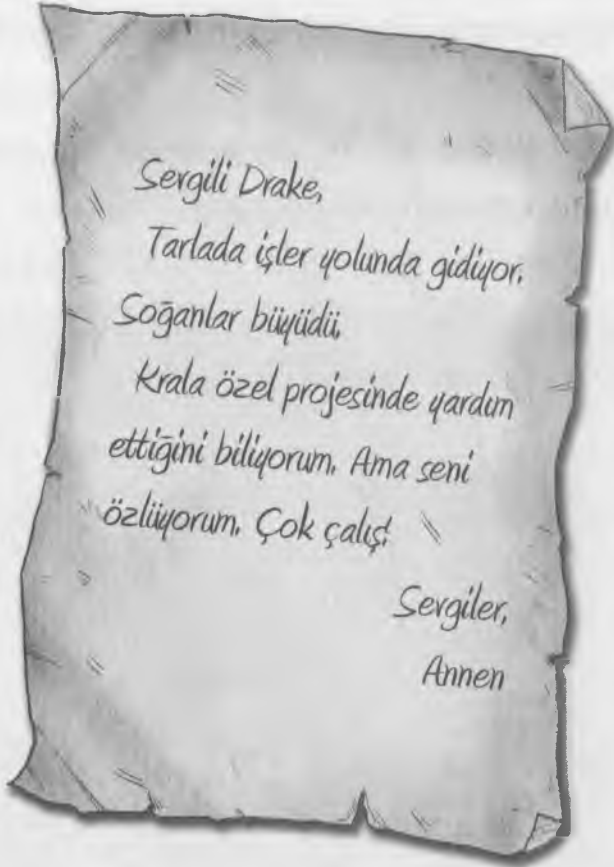 Sevgili Drake,
Tarlada işler yolunda gidiyor.
Soğanlar büyüdü.
Krala özel projesinde yardım
ettiğini biliyorum. Ama seni
özlüyorum. Çok çalış!
Sevgiler,
Annen